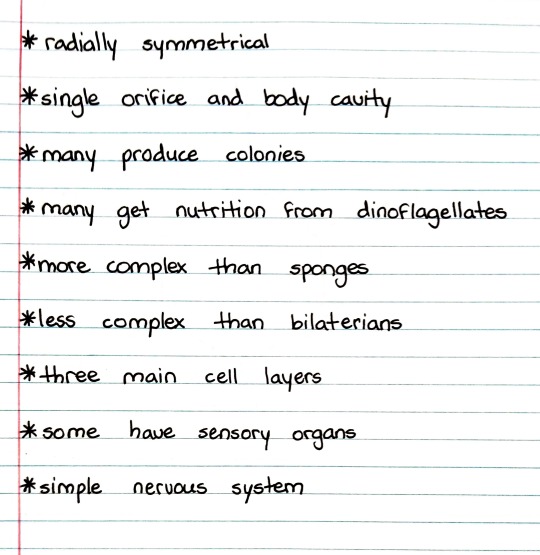 * radially symmetrical
* single orifice and body cavity
* many produce colonies
* many get nutrition from dinoflagellates
* more complex than sponges
* less complex than bilaterians
* three main cell layers
* some have sensory organs
* simple nervous system